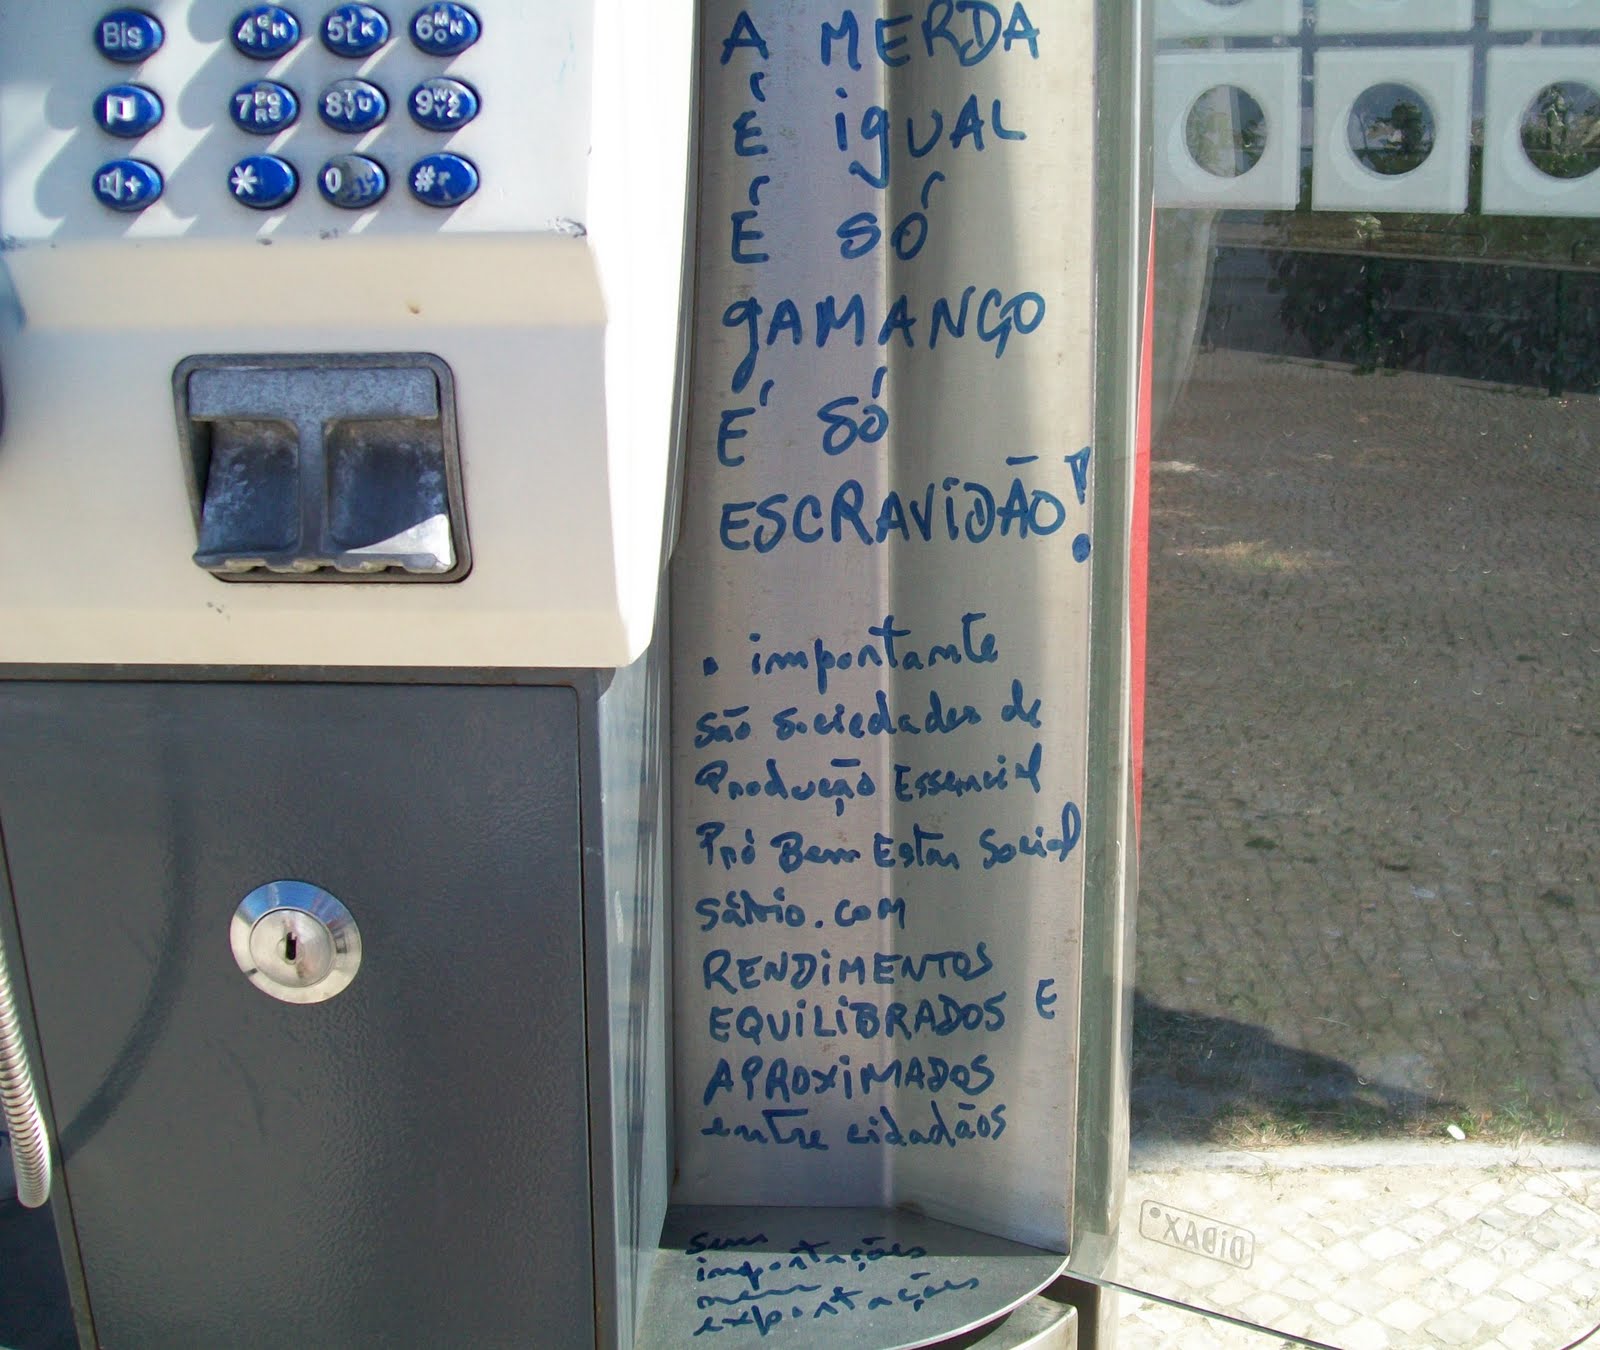 Bis
4GHI
5JKL
6MNO
7PQRS
8TUV
9WXYZ
*
0
#
A MERDA
É igUAL
É SÓ
gAMANÇO
É SÓ
ESCRAViDÃO!
. importante
são sociedades de
Produção Essencial
Pró Bem Estar Social
sábio.com
RENDiMENTOS
EQUiLiBRADOS E
APROXiMADOS
entre cidadãos
sem
importações
nem
exportações
DiDAX